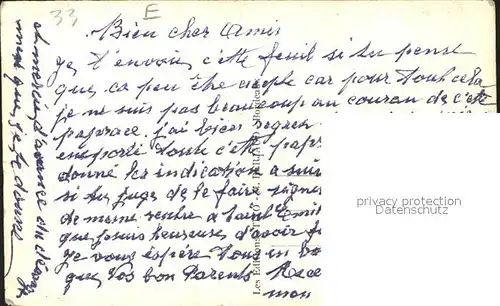 33 E
Bien cher Amis
Je t'envois cette feuil si tu pense
que ca peu être remple car pour tout cela
je ne suis pas beaucoup au couran de c'ette
paperace. j'ai bien
emporté toute c'ette pape
donné les indication a suiv
si tu juge de le faire signer
de meme rentre a Saint Emil
que je suis heureuse d'avoir
Je vous espère tous en bo
que vos bon Parents Rece
mon
et merci d'avance du déran
ment que je te donne
Les Editions
privacy protection
Datenschutz